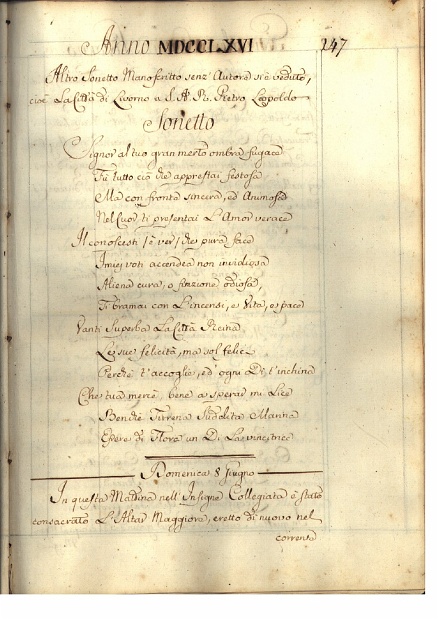 Anno MDCCLXVI 247
Altro Sonetto Manoscritto senz' Autore si è veduto,
cioè La Città di Livorno a S. A. R. Pietro Leopoldo
Sonetto
Signor al tuo gran merto ombra fugace
Fù tutto ciò che apprestai festosa
Ma con fronte sincera, ed Animosa
Nel Cuor ti presentai L'Amor verace
Il conoscesti / è ver / che pura face
I miei voti accendea non invidiosa
Aliena cura, o finzione odiosa,
Ti bramai con L'incensi, e Vita, e pace
Vanti Superba La Città Vicina
Le sue felicità, ma sol felice
Perchè t'accoglie, ed ogni Dì t'inchina
Che tua mercè, bene a sperar mi Lice
Benchè Tirrena Marina
Essere di Flora un Dì La vincitrice
Domenica 8 Giugno
In questa Mattina nell' Insigne Collegiata è stato
consacrato L'Altar Maggiore, eretto di nuovo nel
corrente